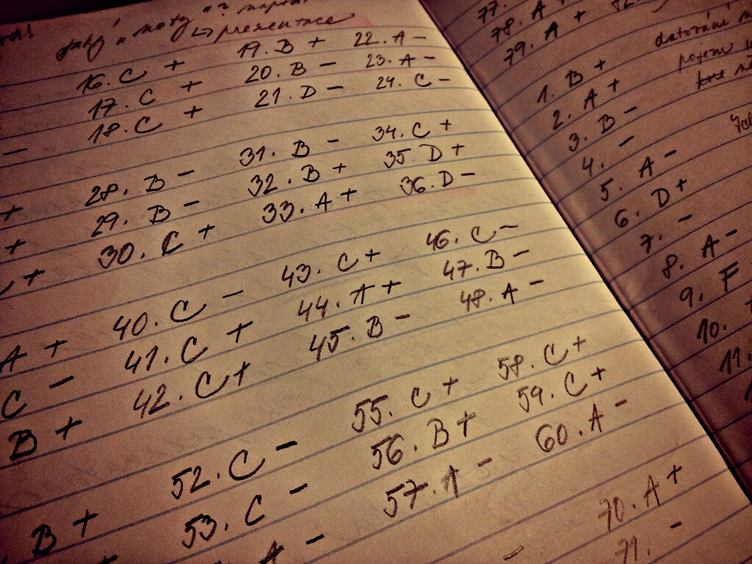 presentace
16. C + 19. B + 22. A -
17. C + 20. B - 23. A -
18. C + 21. D - 24. C -
-
28. B - 31. B - 34. C +
+ 29. B - 32. B + 35. D +
+ 30. C + 33. A + 36. D -
+
A + 40. C - 43. C + 46. C -
C - 41. C + 44. A + 47. B -
B + 42. C + 45. B - 48. A -
52. C - 55. C + 58. C +
B + 53. C - 56. B + 59. C +
A - 57. A - 60. A -
70. A +
71. -
77.
78. A +
79. A +
1. B + datování
2. A + pojem
3. B -
4. -
5. A -
6. D +
7. -
8. A -
9. F
10.
11.